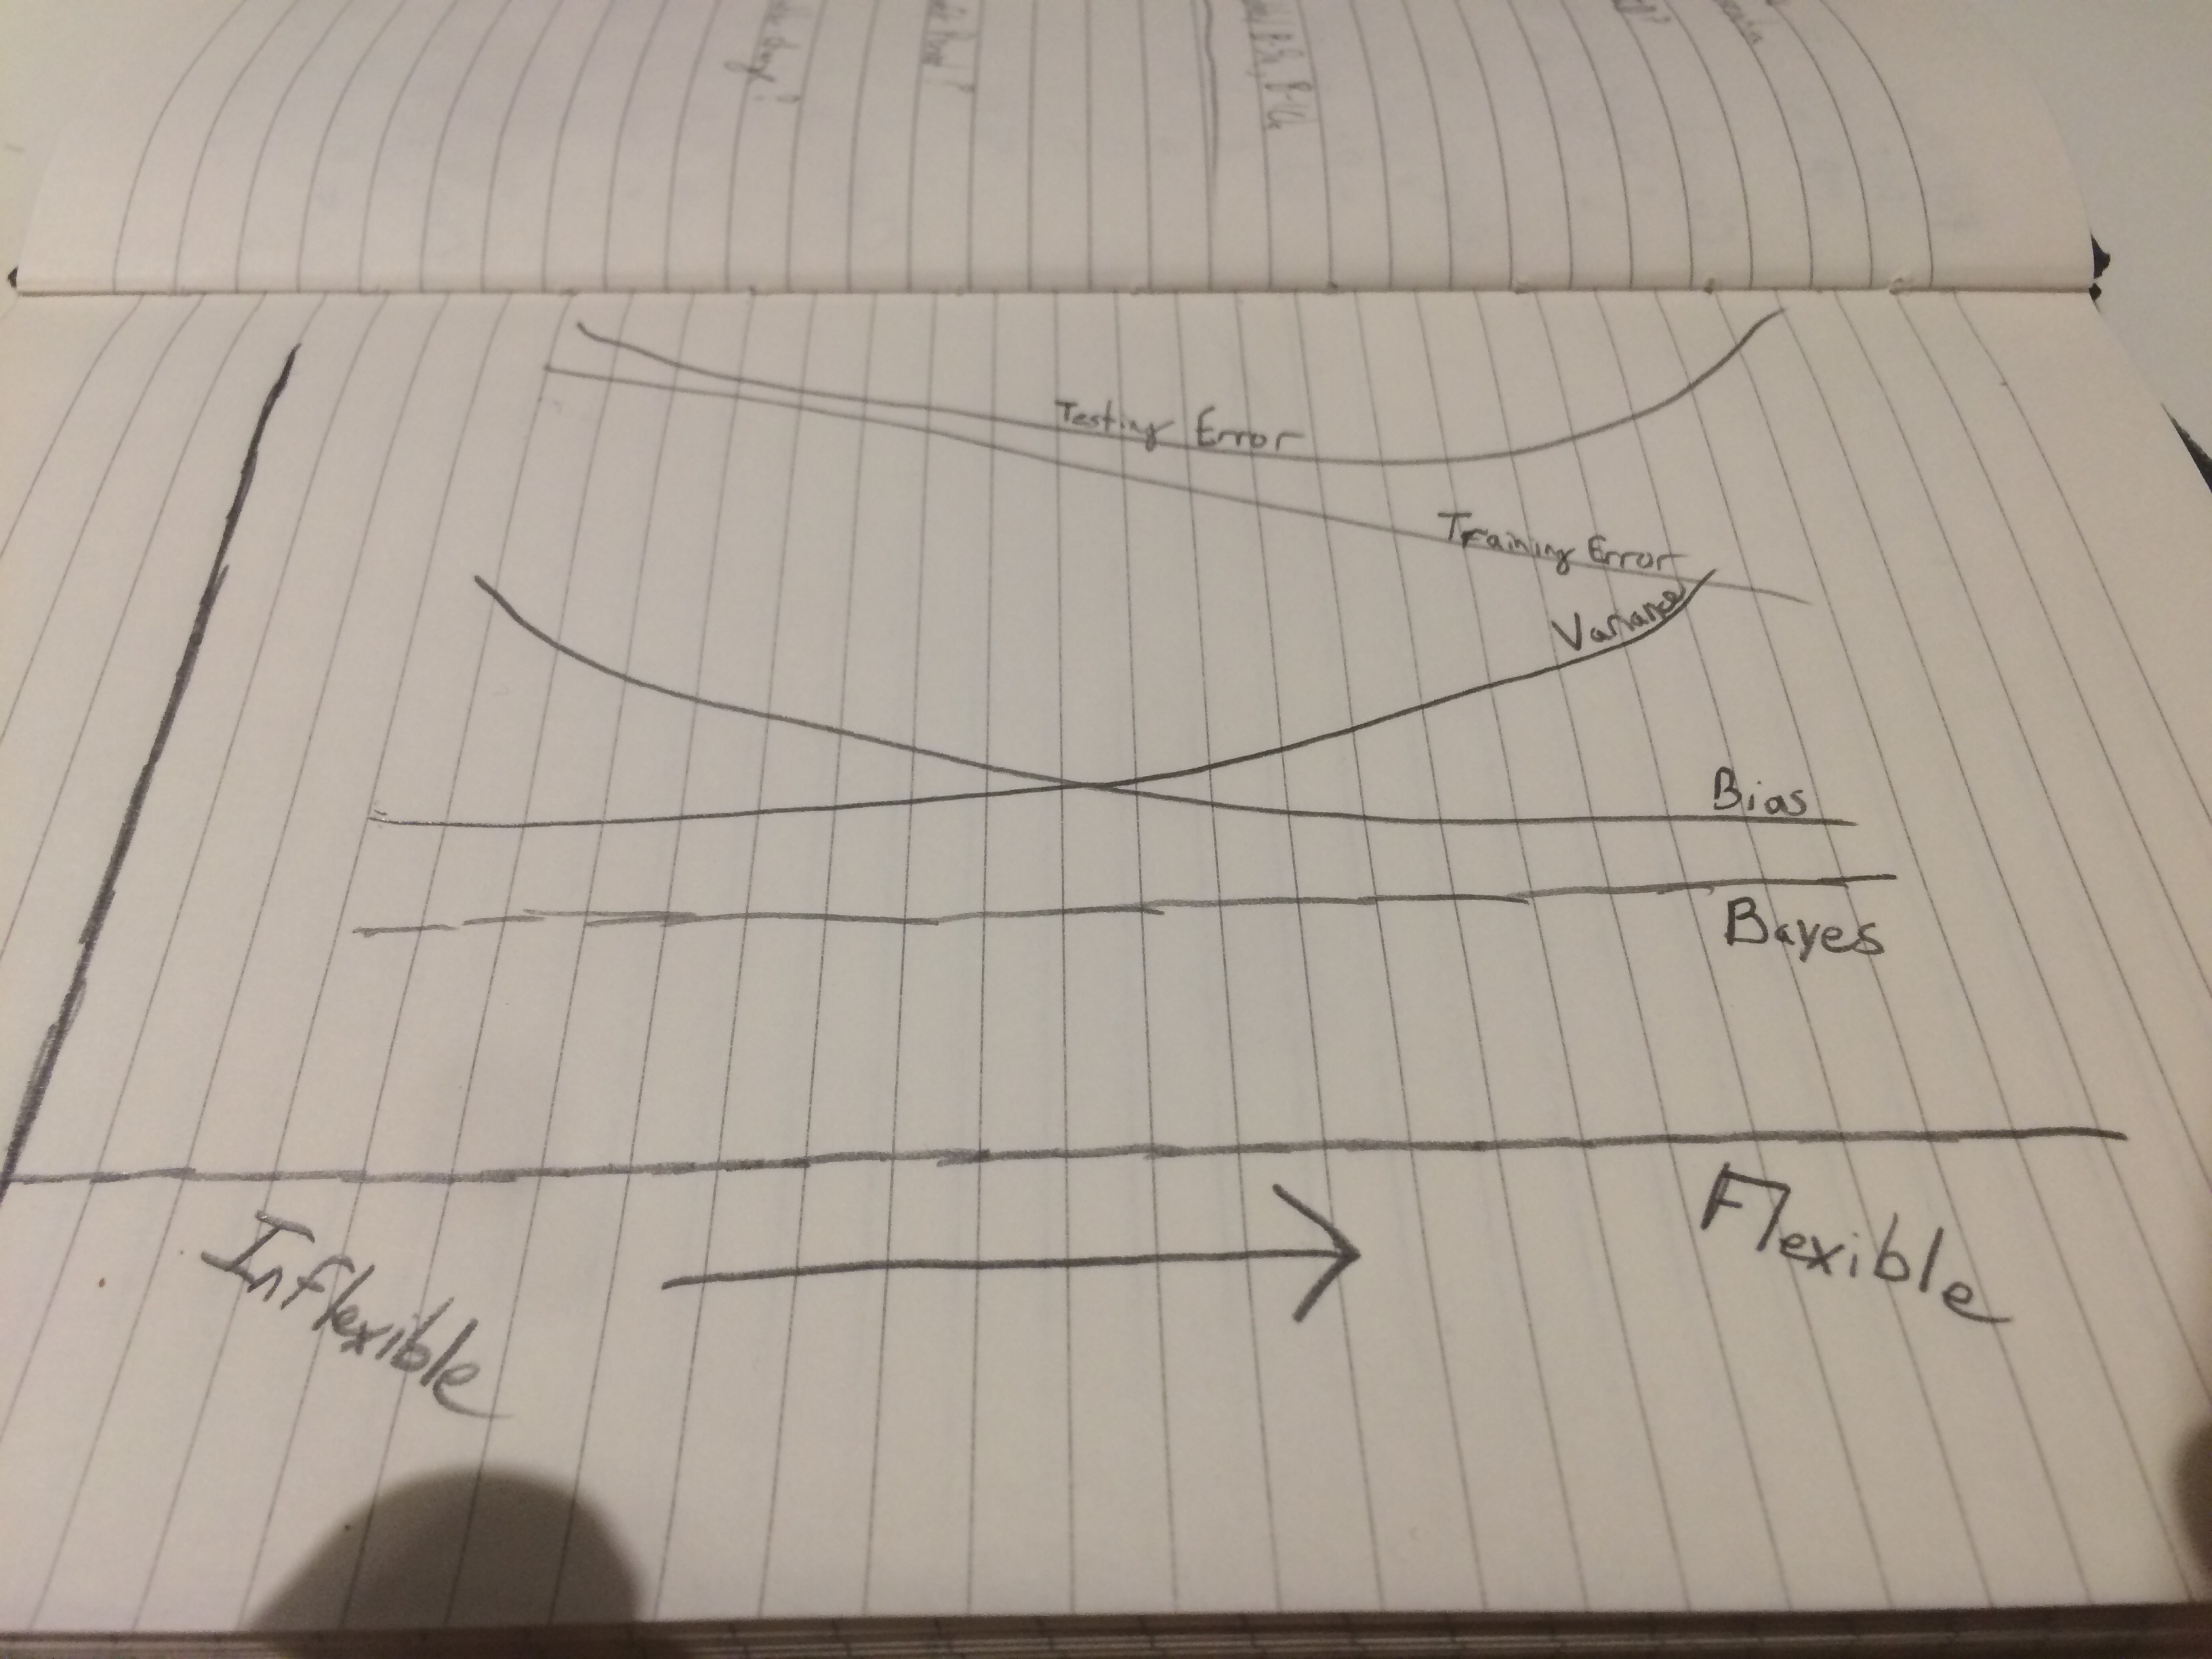 Testing Error
Training Error
Variance
Bias
Bayes
Inflexible
Flexible